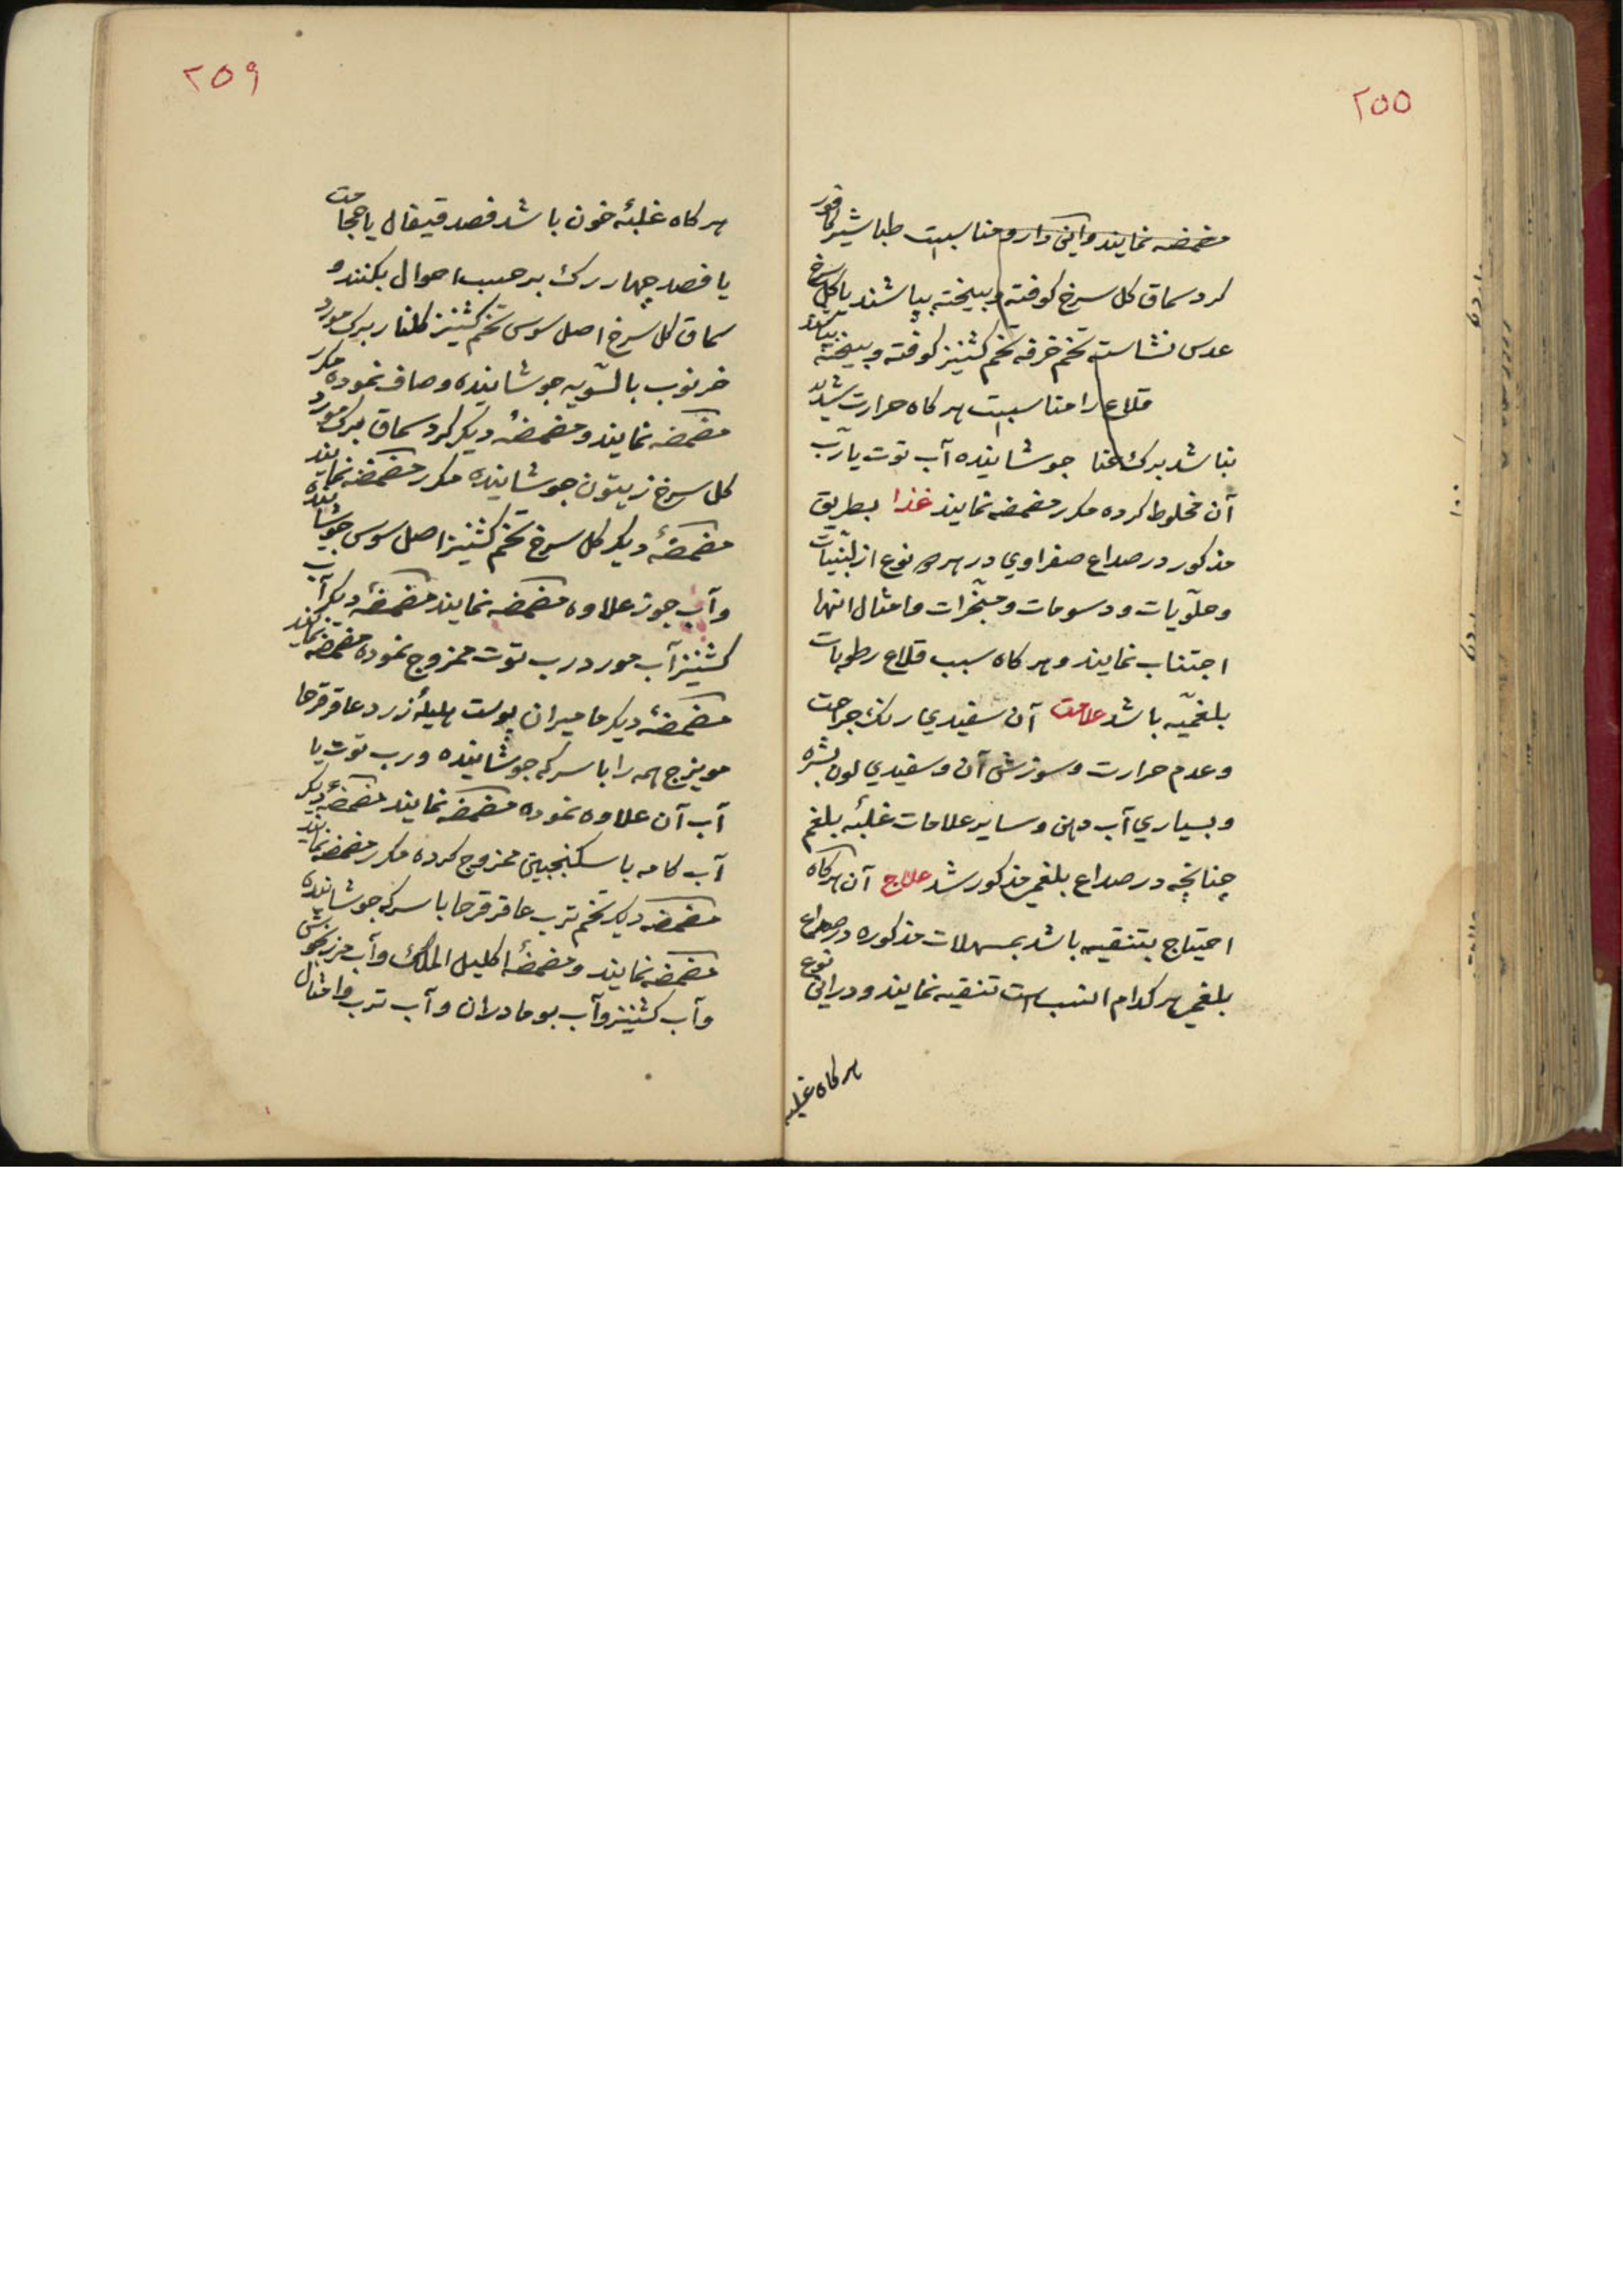 ۲۵۵
مضمضه نمایند و این دارو مناسبست طباشیر کافور
کرد سماق کل سرخ کوفته و بیخته بپاشند یا کل سرخ
عدس نشاسته تخم خرفه تخم کشنیز کوفته و بیخته بپاشند
قلاع را مناسبست هرکاه حرارت شدید
نباشد برک حنا جوشانیده آب توت یا رب
آن مخلوط کرده مکرر مضمضه نمایند غذا بطریق
مذکور در صداع صفراوي در هر دو نوع از لبنیات
و حلویات و دسومات و مبخرات و امثال انها
اجتناب نمایند و هرکاه سبب قلاع رطوبات
بلغمیّه باشد علامت آن سفیدي رنك جراحت
و عدم حرارت و سوزش آن و سفیدي لون بشره
و بسیاري آب دهن و سایر علامات غلبهٔ بلغم
چنانچه در صداع بلغمي مذکور شد علاج آن هرکاه
احتیاج بتنقیه باشد بمسهلات مذکوره در صداع
بلغمي هر کدام انسب است تنقیه نمایند و در این نوع
هرکاه غلبه
۲۵۹
هرکاه غلبهٔ خون باشد فصد قیفال یا حجامت
یا فصد چهار رك برحسب احوال بکنند و
سماق کل سرخ اصل سوس تخم کشنیز کلنار برک مورد
خرنوب بالسّویه جوشانیده و صاف نموده مکرر
مضمضه نمایند و مضمضهٔ دیکر کرد سماق برک مورد
کل سرخ زیتون جوشانیده مکرر مضمضه نمایند
مضمضهٔ دیکر کل سرخ تخم کشنیز اصل سوس جوشانیده
و آب جوز علاوه مضمضه نمایند مضمضهٔ دیکر آب
کشنیز آب مورد رب توت ممزوج نموده مضمضه نمایند
مضمضهٔ دیکر مامیران پوست هلیلهٔ زرد عاقرقرحا
مویزج همه را با سرکه جوشانیده و رب توت یا
آب آن علاوه نموده مضمضه نمایند مضمضهٔ دیکر
آب کامه با سکنجبین ممزوج کرده مکرر مضمضه نمایند
مضمضه دیکر تخم ترب عاقرقرحا با سرکه جوشانیده
مضمضه نمایند و مضمضهٔ اکلیل الملك و آب مرزنجوش
و آب کشنیز و آب بومادران و آب ترب و امثال